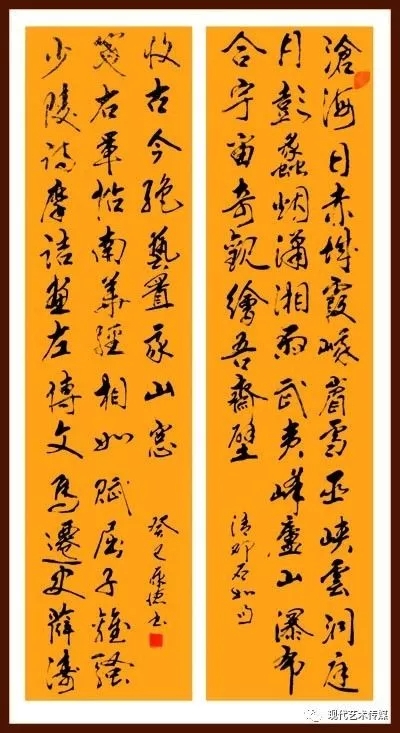 滄海日赤城霞峨眉雪巫峽雲洞庭
月彭蠡烟瀟湘雨武夷峰廬山瀑布
合宇宙奇觀繪吾齋壁
清鄧石如句
少陵詩摩詰畫左傳文馬遷史薛濤
箋右軍帖南華經相如賦屈子離騷
收古今絶藝置我山窓
癸巳書
现代艺术传媒